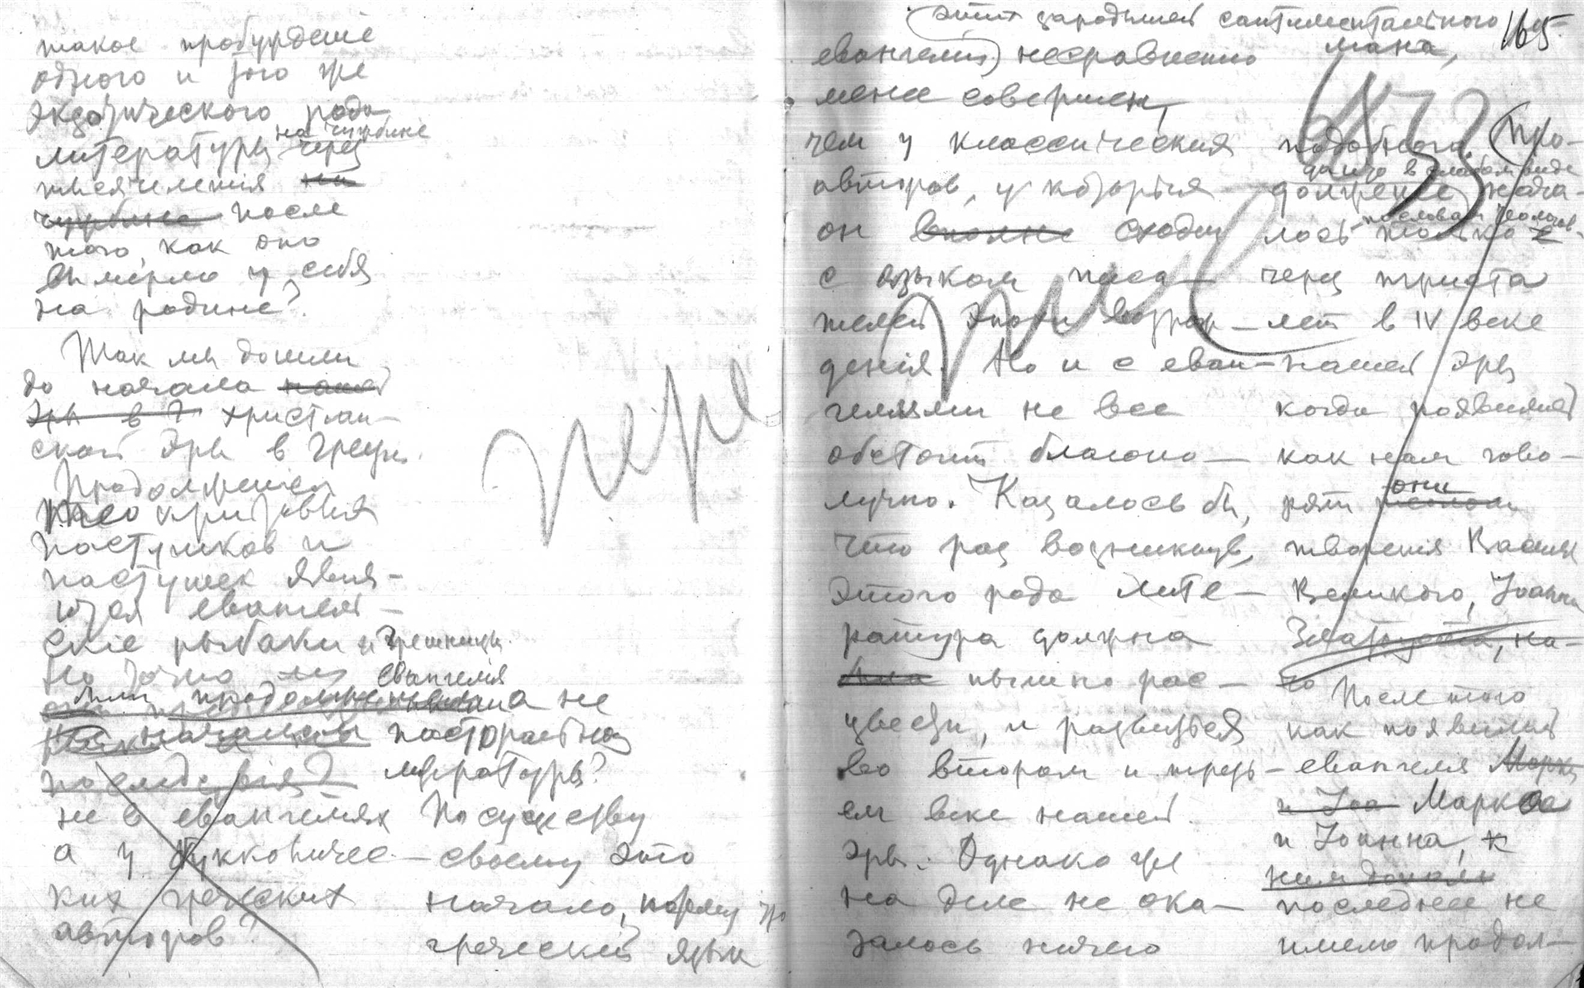 такое пробуждение
одного и того же
экзотического рода
литературы на чужбине через
тысячелетия на
чужбине после
того, как оно
вымерло у себя
на родине?
Так мы дошли
до начала нашей
эры в христиан-
ской эры в Греции.
Продолжением
пастушков и
пастушек явля-
ются евангель-
ские рыбаки и грешницы.
Но точно ли евангелия
а не
начались пасторальной
последствия? литературы?
не в евангелиях
а у буколичес-
ких греческих
авторов?
По существу
своему это
начало, потому что
греческий язык
этих зародышей сантиментального 165
евангелий) несравненно
менее совершен,
чем у классических
авторов, у которых
он вполне сходен
с языком писа-
телей Эпохи Возрож-
дения. Но и с еван-
гелиями не все
обстоит благопо-
лучно. Казалось бы,
что раз возникнув,
этого рода лите-
ратура должна
была пышно рас-
цвести, и развиться
во втором и треть-
ем веке нашей
эры. Однако же
на деле не ока-
залось ничего
мана,
подобного. Про-
должение нача-
лось только с
через триста
лет в IV веке
нашей эры
когда появились
как нам гово-
рят они
творения Василия
Великого, Иоанна
Златоуста, на-
После того
как появились
евангелия Марка
и Иоа Марка
и Иоанна, к
ним
последнее не
имело продол-
пере
пис